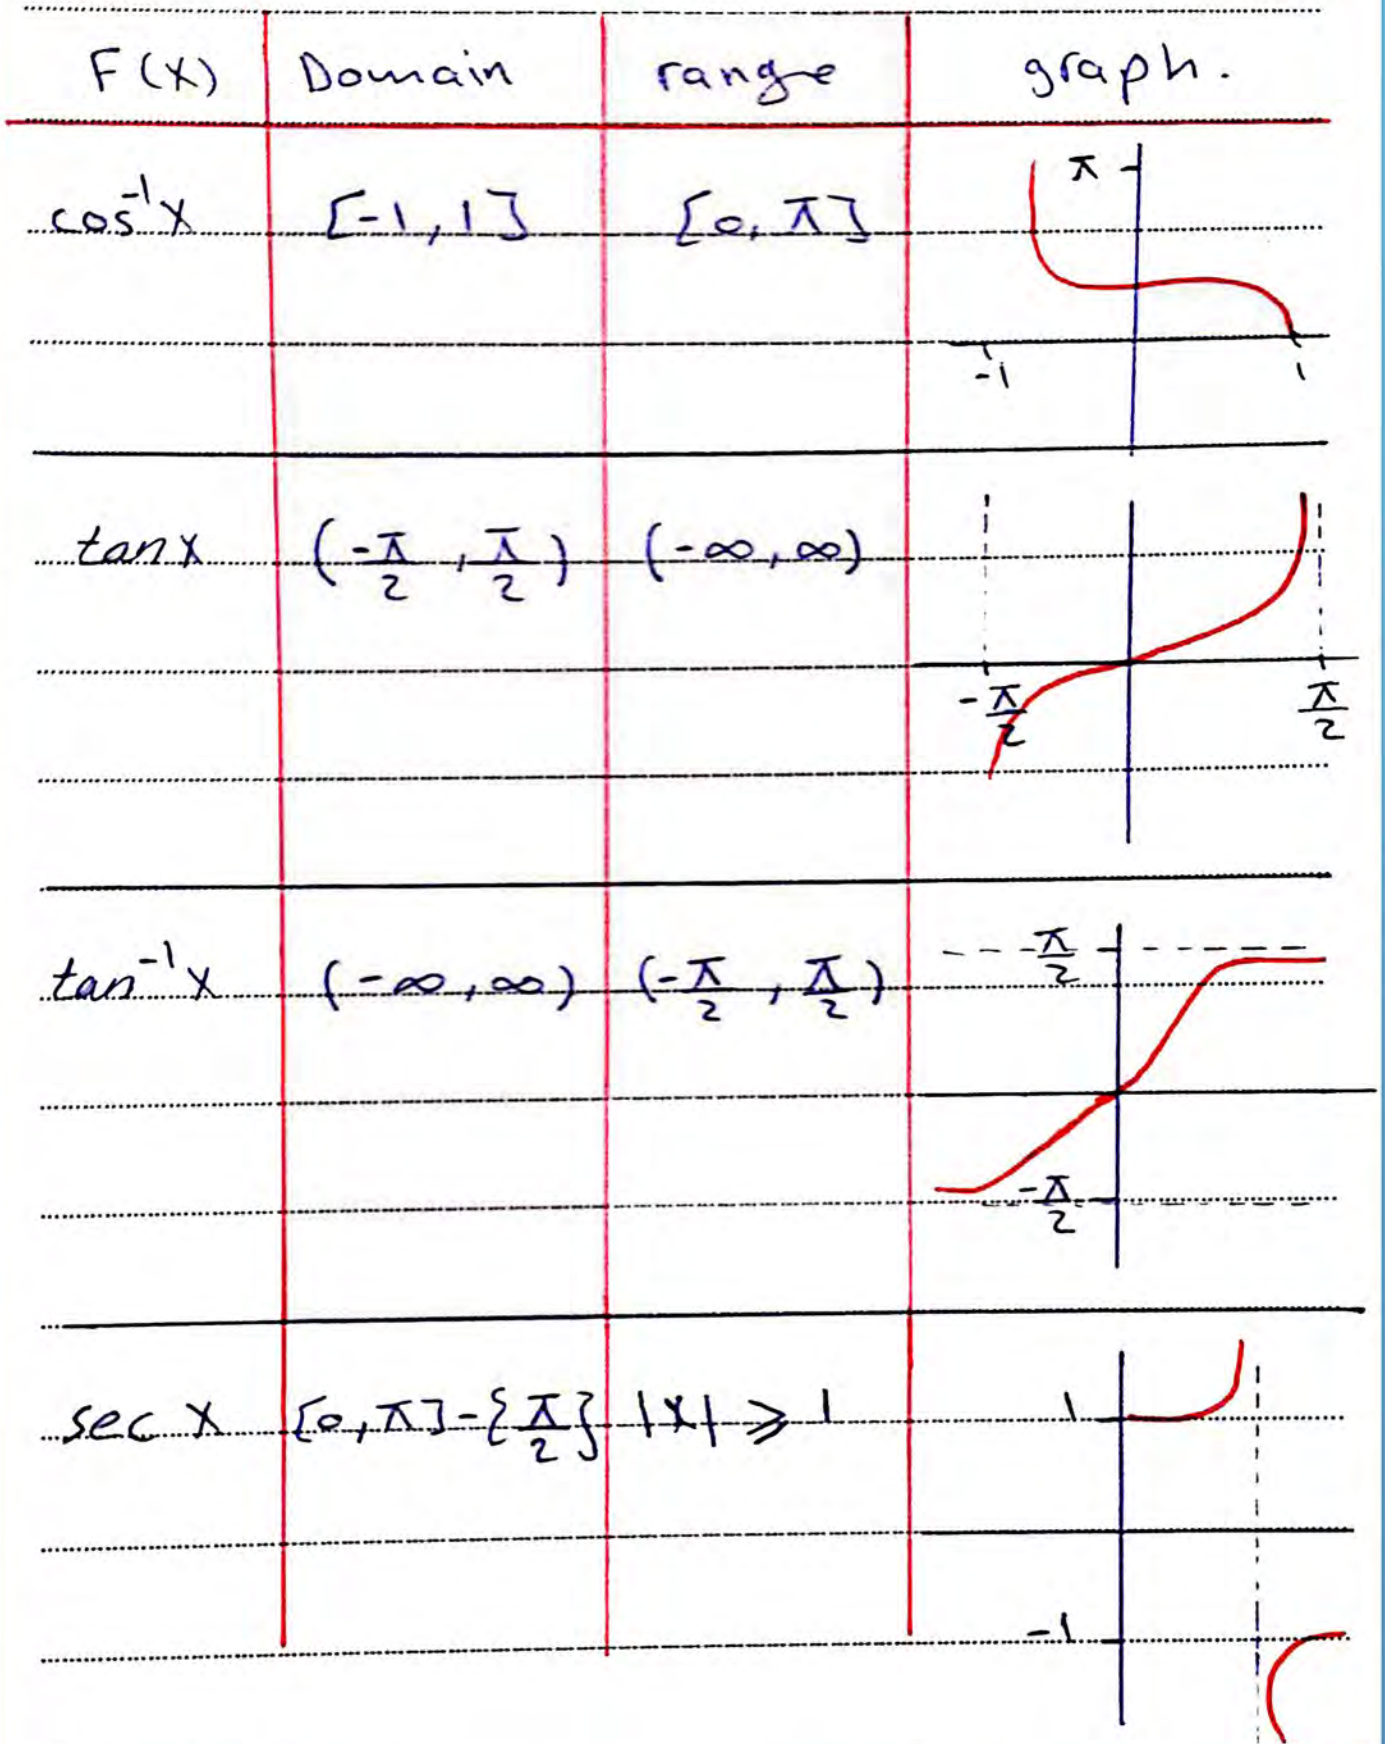 F(x) Domain range graph.
π
cos⁻¹x [-1, 1] [0, π]
-1 1
tan x (-π/2, π/2) (-∞, ∞)
-π/2 π/2
π/2
tan⁻¹x (-∞, ∞) (-π/2, π/2)
-π/2
sec x [0, π]-{π/2} |x| ≥ 1 1
-1